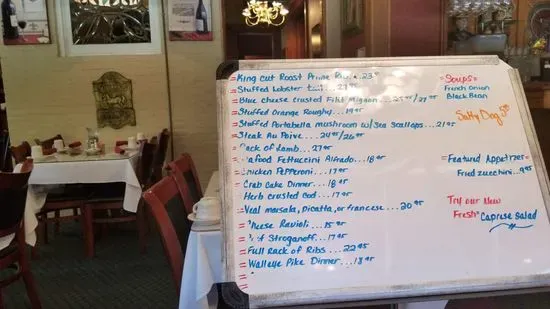 King Cut Roast Prime Rib.. 23⁹⁵
Stuffed Lobster tail.. 27⁹⁵
Blue cheese crusted Filet Mignon... 25⁹⁵/27⁹⁵
Stuffed Orange Roughy.. 19⁹⁵
Stuffed Portabella mushroom w/Sea Scallops.. 21⁹⁵
Steak Au Poive.. 24⁹⁵/26⁹⁵
Rack of Lamb... 27⁹⁵
Seafood Fettuccini Alfredo... 18⁹⁵
Chicken Pepperoni... 17⁹⁵
Crab Cake Dinner.. 18⁹⁵
Herb crusted Cod.. 17⁹⁵
Veal marsala, picatta, or francese... 20⁹⁵
Cheese Ravioli... 15⁹⁵
Beef Stroganoff... 17⁹⁵
Full Rack of Ribs.. 22⁹⁵
Walleye Pike Dinner... 18⁹⁵
Soups
French Onion
Black Bean
Salty Dog 5⁰⁰
Featured Appetizer
Fried Zucchini.. 9⁹⁵
Try our New
Fresh Caprese Salad